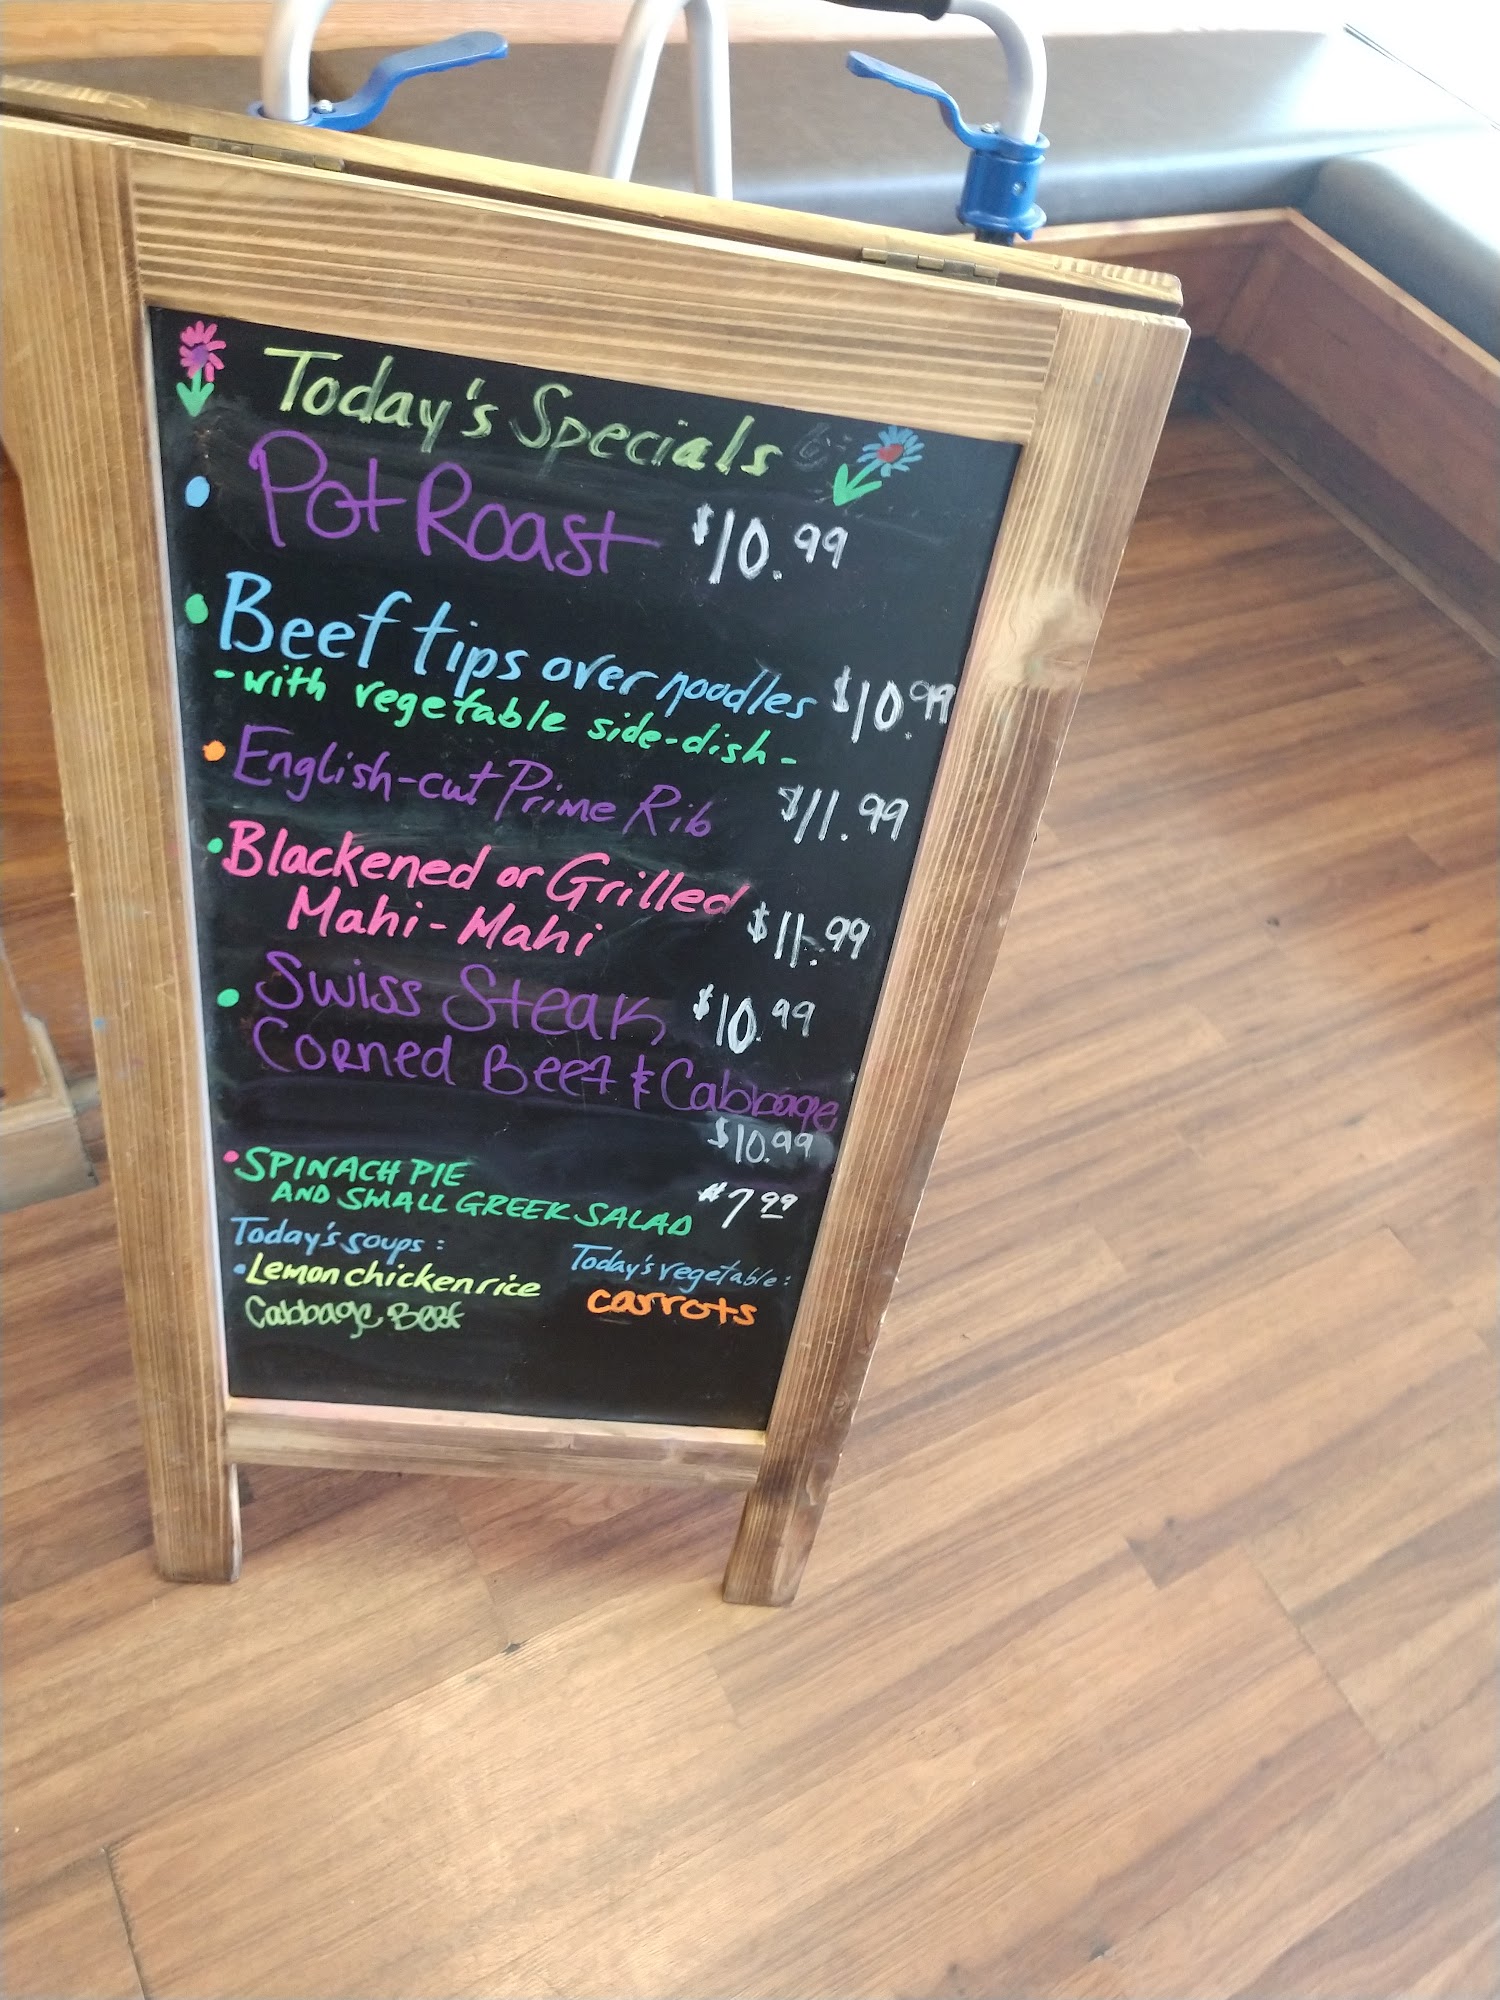 Today's Specials
Pot Roast $10.99
Beef tips over noodles $10.99
-with vegetable side-dish-
English-cut Prime Rib $11.99
Blackened or Grilled
Mahi-Mahi $11.99
Swiss Steak $10.99
Corned Beef & Cabbage
$10.99
SPINACH PIE
AND SMALL GREEK SALAD $7.99
Today's soups:
Lemon chicken rice
Cabbage Beef
Today's vegetable:
carrots